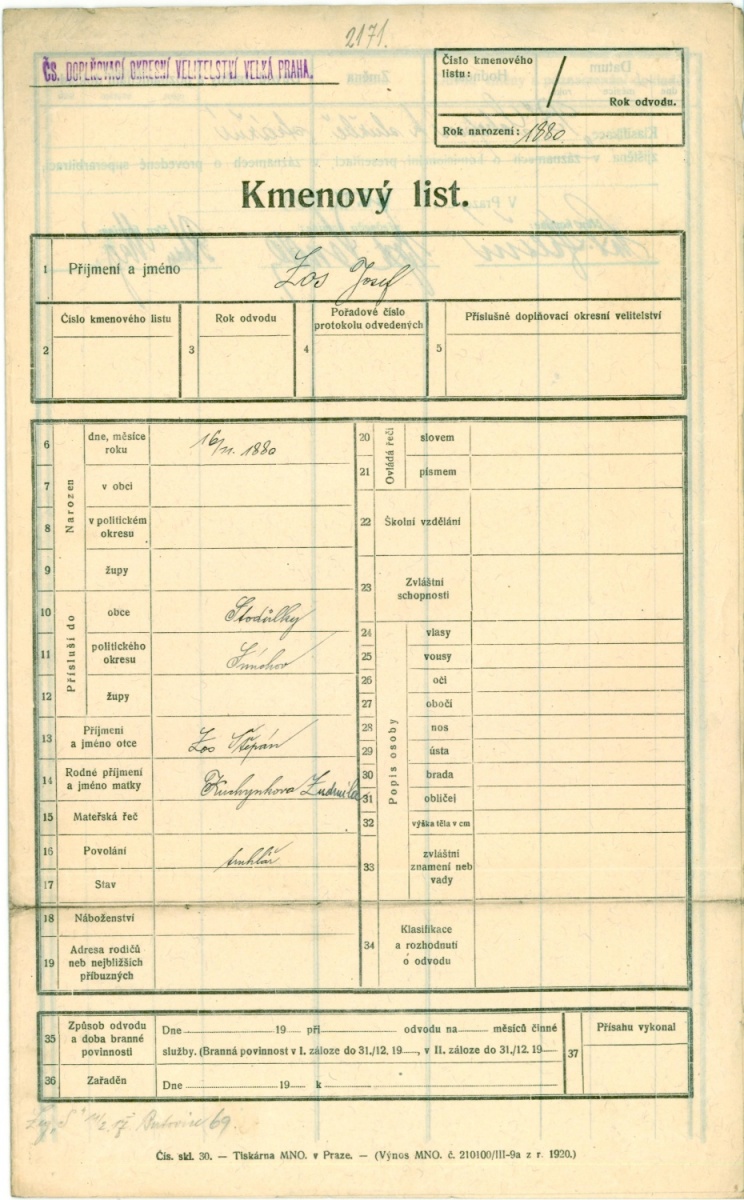 2171.
ČS. DOPLŇOVACÍ OKRESNÍ VELITELSTVÍ VELKÁ PRAHA.
Číslo kmenového
listu: /
Rok odvodu.
Rok narození: 1880.
Kmenový list.
1 Příjmení a jméno Zos Josef
2 Číslo kmenového listu 3 Rok odvodu 4 Pořadové číslo protokolu odvedených 5 Příslušné doplňovací okresní velitelství
Narozen
6 dne, měsíce roku 16/II. 1880
7 v obci
8 v politickém okresu
9 župy
Přísluší do
10 obce Stodůlky
11 politického okresu Smíchov
12 župy
13 Příjmení a jméno otce Zos Štěpán
14 Rodné příjmení a jméno matky Kuchynkova Ludmila
15 Mateřská řeč
16 Povolání truhlář
17 Stav
18 Náboženství
19 Adresa rodičů neb nejbližších příbuzných
Ovládá řeči
20 slovem
21 písmem
22 Školní vzdělání
23 Zvláštní schopnosti
Popis osoby
24 vlasy
25 vousy
26 oči
27 obočí
28 nos
29 ústa
30 brada
31 obličej
32 výška těla v cm
33 zvláštní znamení neb vady
34 Klasifikace a rozhodnutí o odvodu
35 Způsob odvodu a doba branné povinnosti
Dne 19 při odvodu na měsíců činné
služby. (Branná povinnost v I. záloze do 31./12. 19 , v II. záloze do 31./12. 19
36 Zařaděn Dne 19 k
37 Přísahu vykonal
Butovice 69
Čís. skl. 30. — Tiskárna MNO. v Praze. — (Výnos MNO. č. 210100/III-9a z r. 1920.)